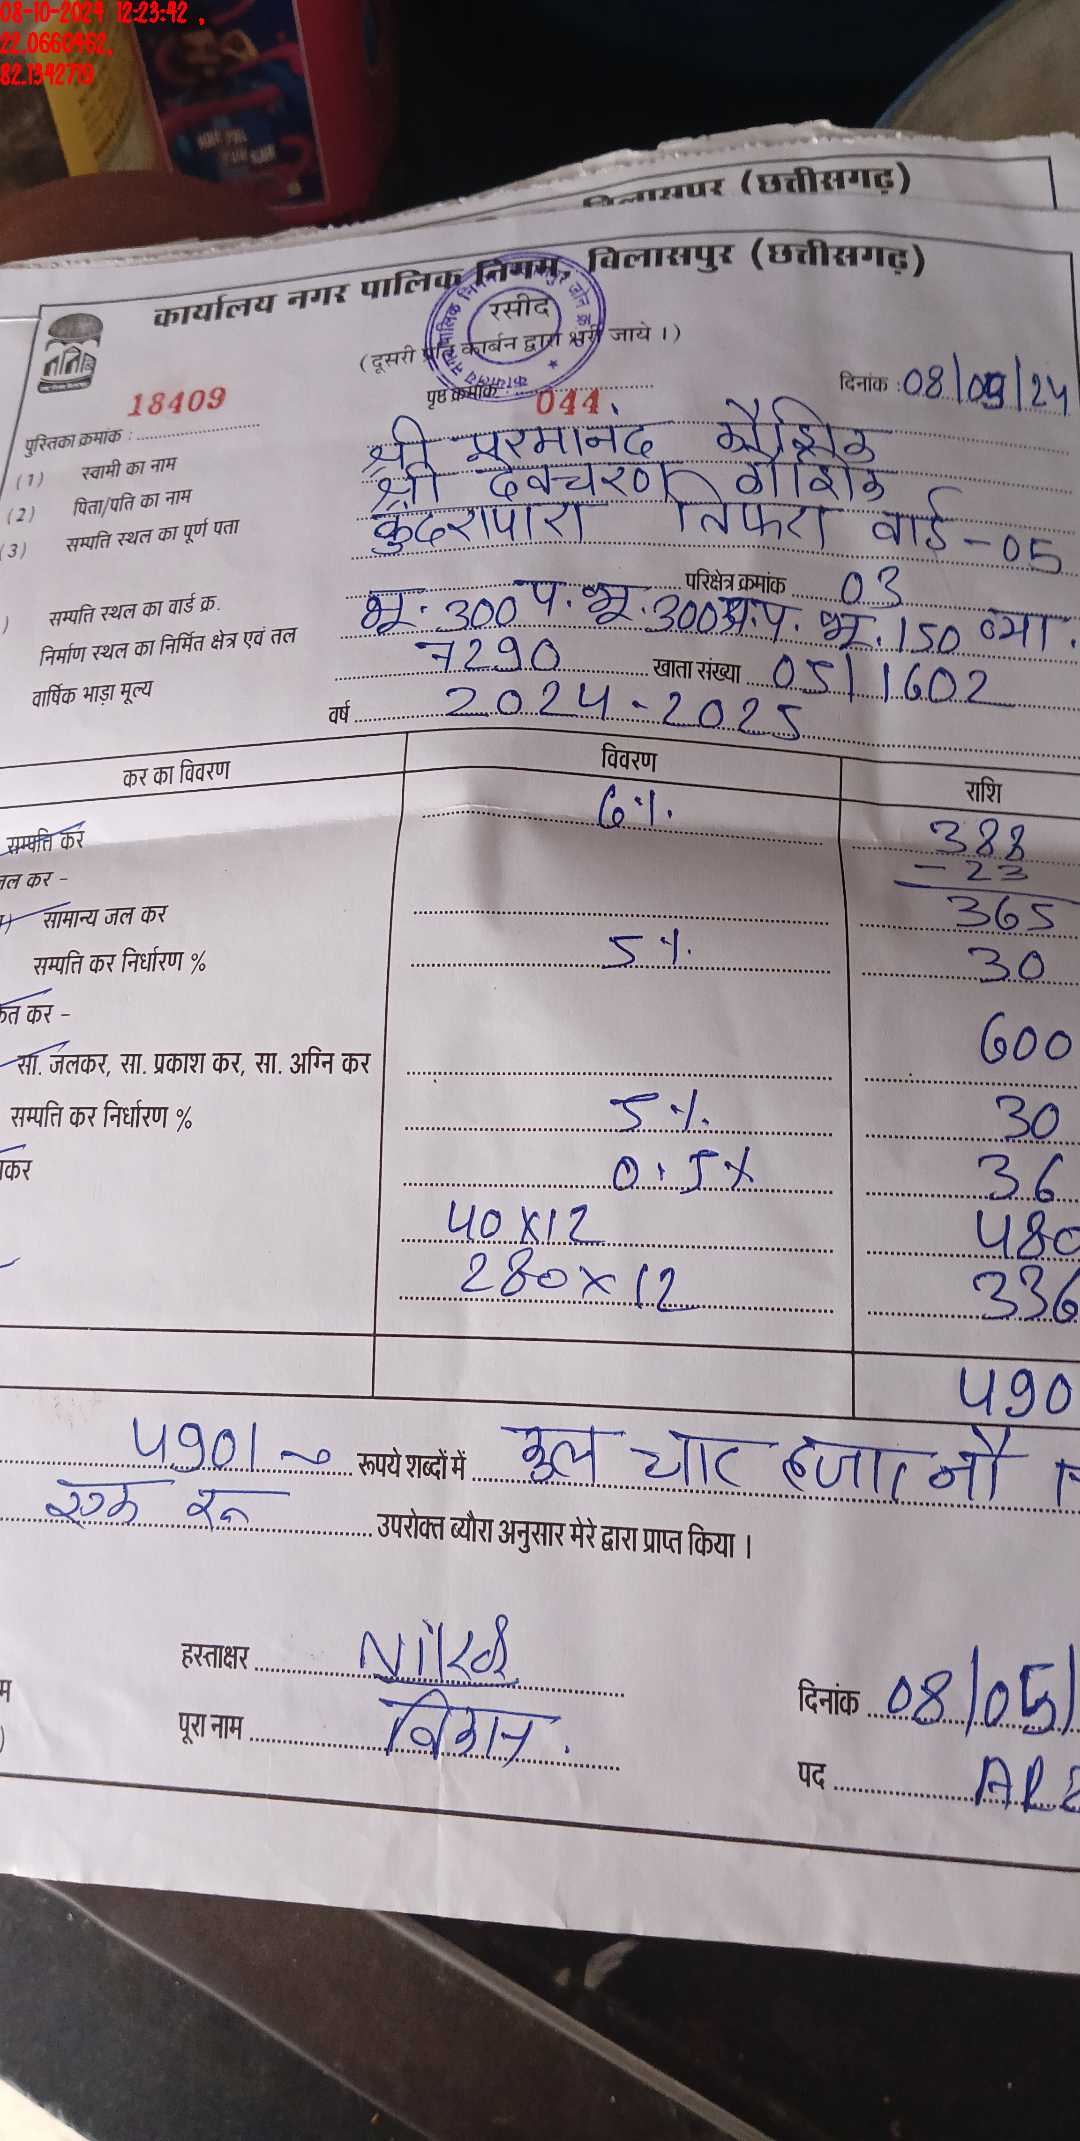 08-10-2024 12:23:42 ,
22.0660462,
82.1342779
बिलासपुर (छत्तीसगढ़)
कार्यालय नगर पालिक निगम, बिलासपुर (छत्तीसगढ़)
रसीद
(दूसरी प्रति कार्बन द्वारा भरी जाये।)
18409
पृष्ठ क्रमांक 044
दिनांक : 08/05/24
पुस्तिका क्रमांक :
(1) स्वामी का नाम श्री परमानंद कौशिक
(2) पिता/पति का नाम श्री देवचरण कौशिक
3) सम्पत्ति स्थल का पूर्ण पता कुंदरापारा तिफरा वार्ड-05
) सम्पत्ति स्थल का वार्ड क्र. परिक्षेत्र क्रमांक 03
निर्माण स्थल का निर्मित क्षेत्र एवं तल भू. 300 प. भू. 300 प. भू. 150 व्या.
वार्षिक भाड़ा मूल्य 7290 खाता संख्या 05/1602
वर्ष 2024-2025
कर का विवरण विवरण राशि
सम्पत्ति कर 6% 388
-23
जल कर -
सामान्य जल कर 365
सम्पत्ति कर निर्धारण % 5% 30
कर -
सा. जलकर, सा. प्रकाश कर, सा. अग्नि कर 600
सम्पत्ति कर निर्धारण % 5% 30
कर 0.5% 36
40x12 480
280x12 336
490
4901/- रूपये शब्दों में कुल चार हजार नौ
एक रू उपरोक्त ब्यौरा अनुसार मेरे द्वारा प्राप्त किया ।
हस्ताक्षर
दिनांक 08/05/
पूरा नाम
पद